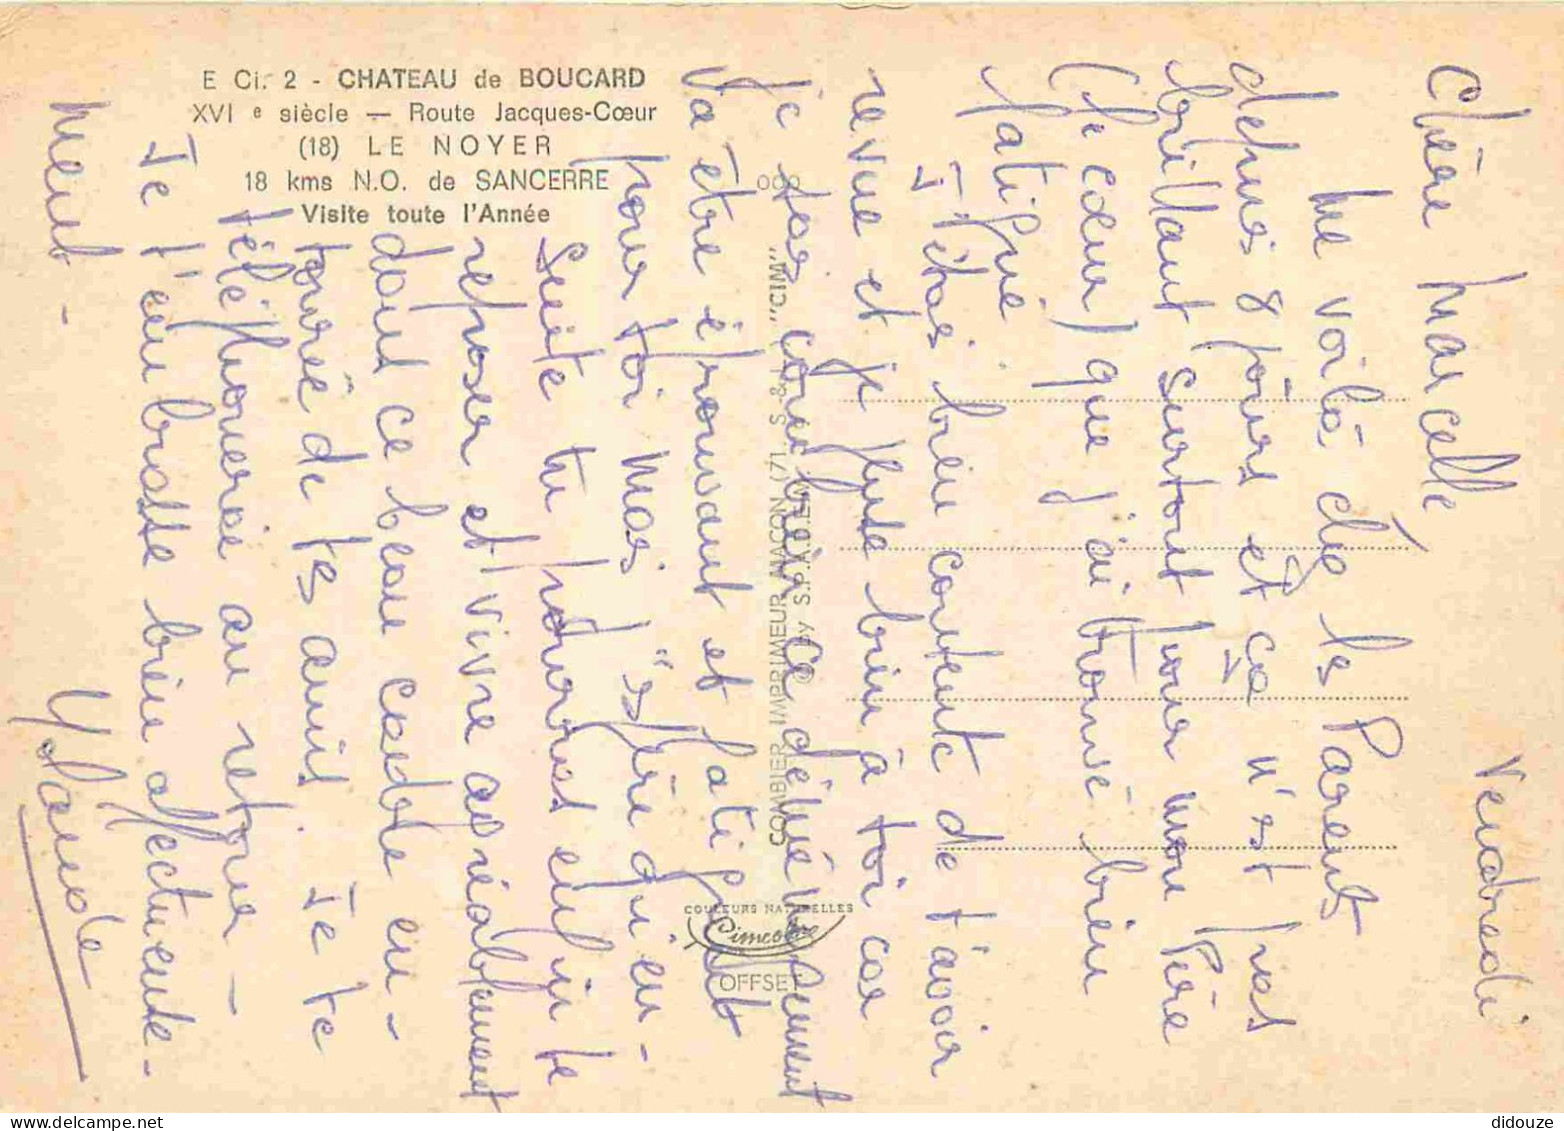 E Ci. 2 - CHATEAU de BOUCARD
XVI e siècle — Route Jacques-Cœur
(18) LE NOYER
18 kms N.O. de SANCERRE
Visite toute l'Année
Vendredi
Chère Marcelle
Me voilà chez les Parents
depuis 8 jours et ça n'est pas
brillant surtout pour mon Père
(le cœur) que j'ai trouvé bien
fatigué
J'étais bien contente de t'avoir
revue et je pense bien à toi car
je sais combien ce déménagement
va être éprouvant et fatigant
pour toi mais j'espère qu'en-
suite tu pourras enfin te
reposer et vivre agréablement
dans ce beau cadre en-
tourée de tes amis. Je te
téléphonerai au retour -
Je t'embrasse bien affectueuse-
ment -
Claude
"MICI"
COMBIER IMPRIMEUR MACON (71. S.-&-
© by S.P.A.D.E.M.
COULEURS NATURELLES
Cimcolore
OFFSET
didouze